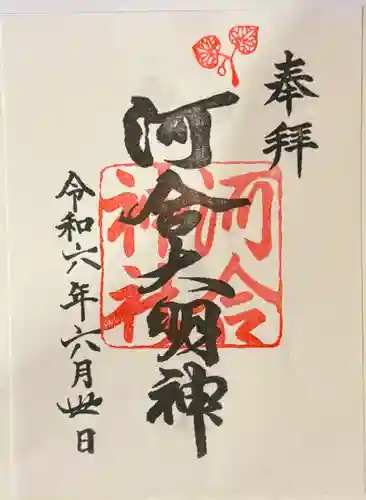 奉拝
河合大明神
河合神社
令和六年六月卅日